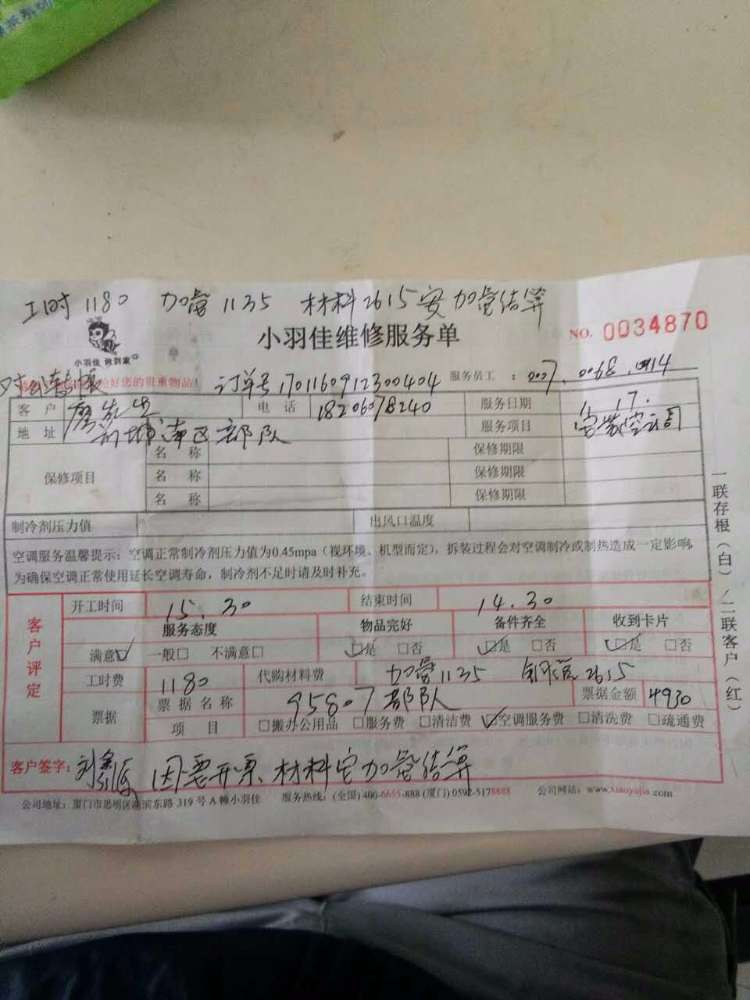 工时 1180 加管1135 材料2615安加管结算
小羽佳 做到家
小羽佳维修服务单
NO. 0034870
好您的贵重物品!
订单号170116091230404 服务员工:007.0068.0414
客户 电话 18206078240 服务日期 1.17.
地址 南区部队 服务项目 安装空调
保修项目
名称 保修期限
名称 保修期限
名称 保修期限
制冷剂压力值 出风口温度
空调服务温馨提示:空调正常制冷剂压力值为0.45mpa(视环境、机型而定),拆装过程会对空调制冷或制热造成一定影响,
为确保空调正常使用延长空调寿命,制冷剂不足时请及时补充。
客户评定
开工时间 15.30 结束时间 14.30
服务态度 物品完好 备件齐全 收到卡片
满意☑ 一般□ 不满意□ ☑是 □否 ☑是 □否 ☑是 □否
工时费 1180 代购材料费 加管1135 2615
票据 票据名称 958.07部队 票据金额 4930
项目 □搬办公用品 □服务费 □清洁费 ☑空调服务费 □清洗费 □疏通费
客户签字: 因要开票材料安加管结算
公司地址:厦门市思明区湖滨东路 319 号 A 幢小羽佳 服务热线:(全国) 400-6655-888 (厦门) 0592-5178888 公司网站:www.xiaoyujia.com
一联存根(白)/二联客户(红)